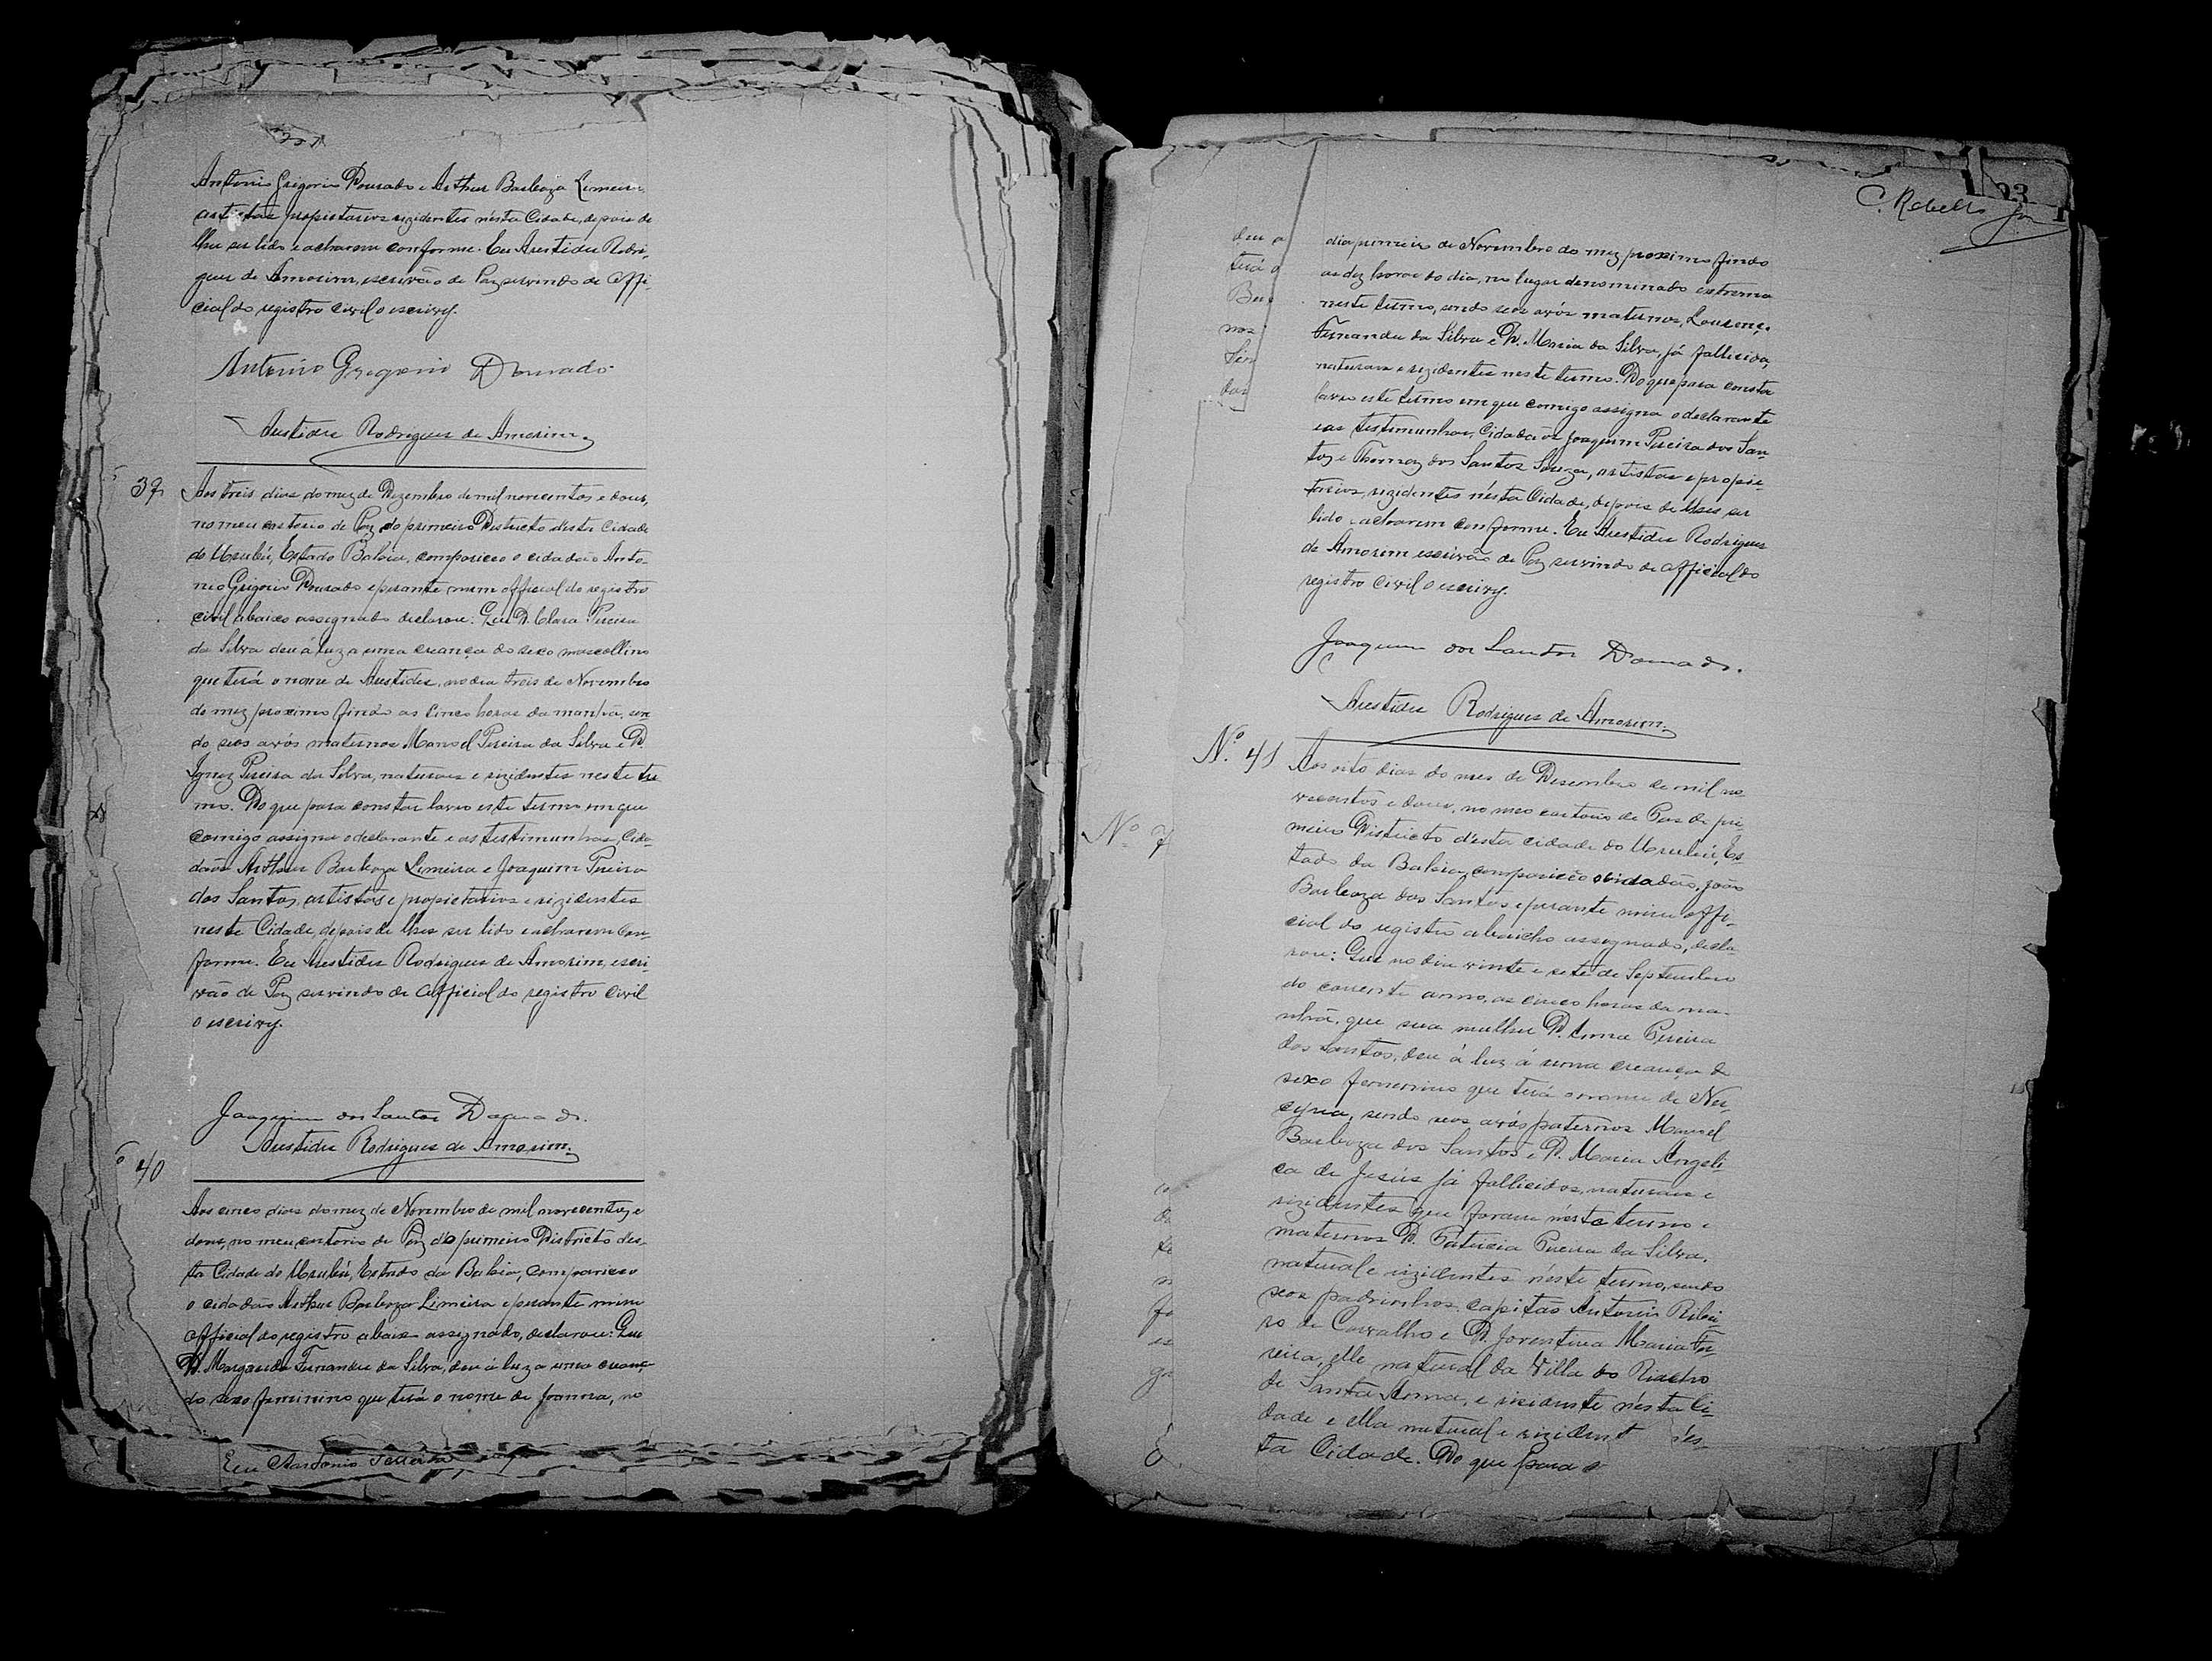 Antonio Grigorio Dourado e Arthur Barboza Limeira,
artistas propietarios rezidentes nésta Cidade, depois de
lhes ser lido e acharem conforme. Eu Aristides Rodri-
gues de Amorim, escrivão de Paz servindo de offi-
cial do registro civil o escrivy.
Antonio Gregorio Dourado
Aristides Rodrigues de Amorim
39
Aos treis dias do mez de Dezembro de mil novecentos e dous,
no meu cartorio de Paz do primeiro Districto désta Cidade
do Urubú, Estado Bahia, compareceo o cidadão Anto-
nio Grigorio Dourado e perante mim official do registro
civil abaixo assignado declarou: Que D. Clara Pereira
da Silva deu á luz a uma creança do sexo mascollino
que terá o nome de Aristides, no dia treis de Novembro
do mez proximo findo as cinco horas da manhã, sen-
do seos avós maternos Manoel Pereira da Silva e D.
Ignez Pereira da Silva, naturaes e rezidentes neste ter
mo. Do que para constar lavro este termo em que
comigo assigna o declarante e as testimunhas, Cida-
dãos Arthur Barboza Limeira e Joaquim Pereira
dos Santos, artistas e propietarios e rezidentes
neste Cidade, depois de lhes ser lido e acharem con-
forme. Eu Aristides Rodrigues de Amorim, escri-
vão de Paz servindo de Official do registro civil
o escrivy.
Joaquim dos Santos Dourado.
Aristides Rodrigues de Amorim.
40
Aos cinco dias do mez de Novembro de mil novecentos e
dous, no meu cartorio de Paz do primeiro Districto des-
ta Cidade do Urubú, Estado da Bahia, compareceo
o cidadão Arthur Barboza Limeira e perante mim
official do registro abaixo assignado, declarou: Que
D. Margarida Fernandes da Silva, deu á luz a uma creança
do sexo feminino que terá o nome de Joanna, no
Eu Antonio Ferreira
C. Rebello Jor
23
dia primeiro de Novembro do mez proximo findo
as dez horas do dia, no lugar denominado extrema
neste termo, sendo seos avós maternos, Lourenço
Fernandes da Silva e D. Maria da Silva, já fallecida,
naturaes e rezidentes neste termo. Do que para constar
lavro este termo em que comigo assigna o declarante
e as testimunhas, Cidadãos Joaquim Pereira dos San-
tos e Thomaz dos Santos Souza, artistas e propie-
tarios, rezidentes nésta Cidade, depois de lhes ser
lido e acharem conforme. Eu Aristides Rodrigues
de Amorim escrivão de Paz servindo de official do
registro civil o escrivy.
Joaquim dos Santos Dourado.
Aristides Rodrigues de Amorim.
No. 41
Aos oito dias do mes de Desembro de mil no-
vecentos e dous, no meo cartorio de Paz do pri-
meiro Districto désta cidade do Urubú, Es-
tado da Bahia, compareceo o cidadão, João
Barboza dos Santos e perante mim offi-
cial do registro abaicho assegnado, decla-
rou: Que no dia vinte e sete de Septembro
do corrente anno, as cinco horas da ma-
nhã, que sua mulher D. Anna Pereira
dos Santos, deu á luz á uma creança do
sexo femenino que terá o nome de Ner-
cyna, sendo seos avós paternos Manoel
Barboza dos Santos e D. Maria Angeli-
ca de Jesús já fallecidos, naturaes e
rezidentes que foram nésta termo e
maternos D. Patricia Pereira da Silva,
natural e rezidentes néste termo, sendo
seos padrinhos capitão Antonio Ribei-
ro de Carvalho e D. Joventina Maria Fer-
reira, elle natural da Villa do Riacho
de Santa Anna, e residente nésta Ci-
dade e ella natural e rezident nés-
ta Cidade. Do que para